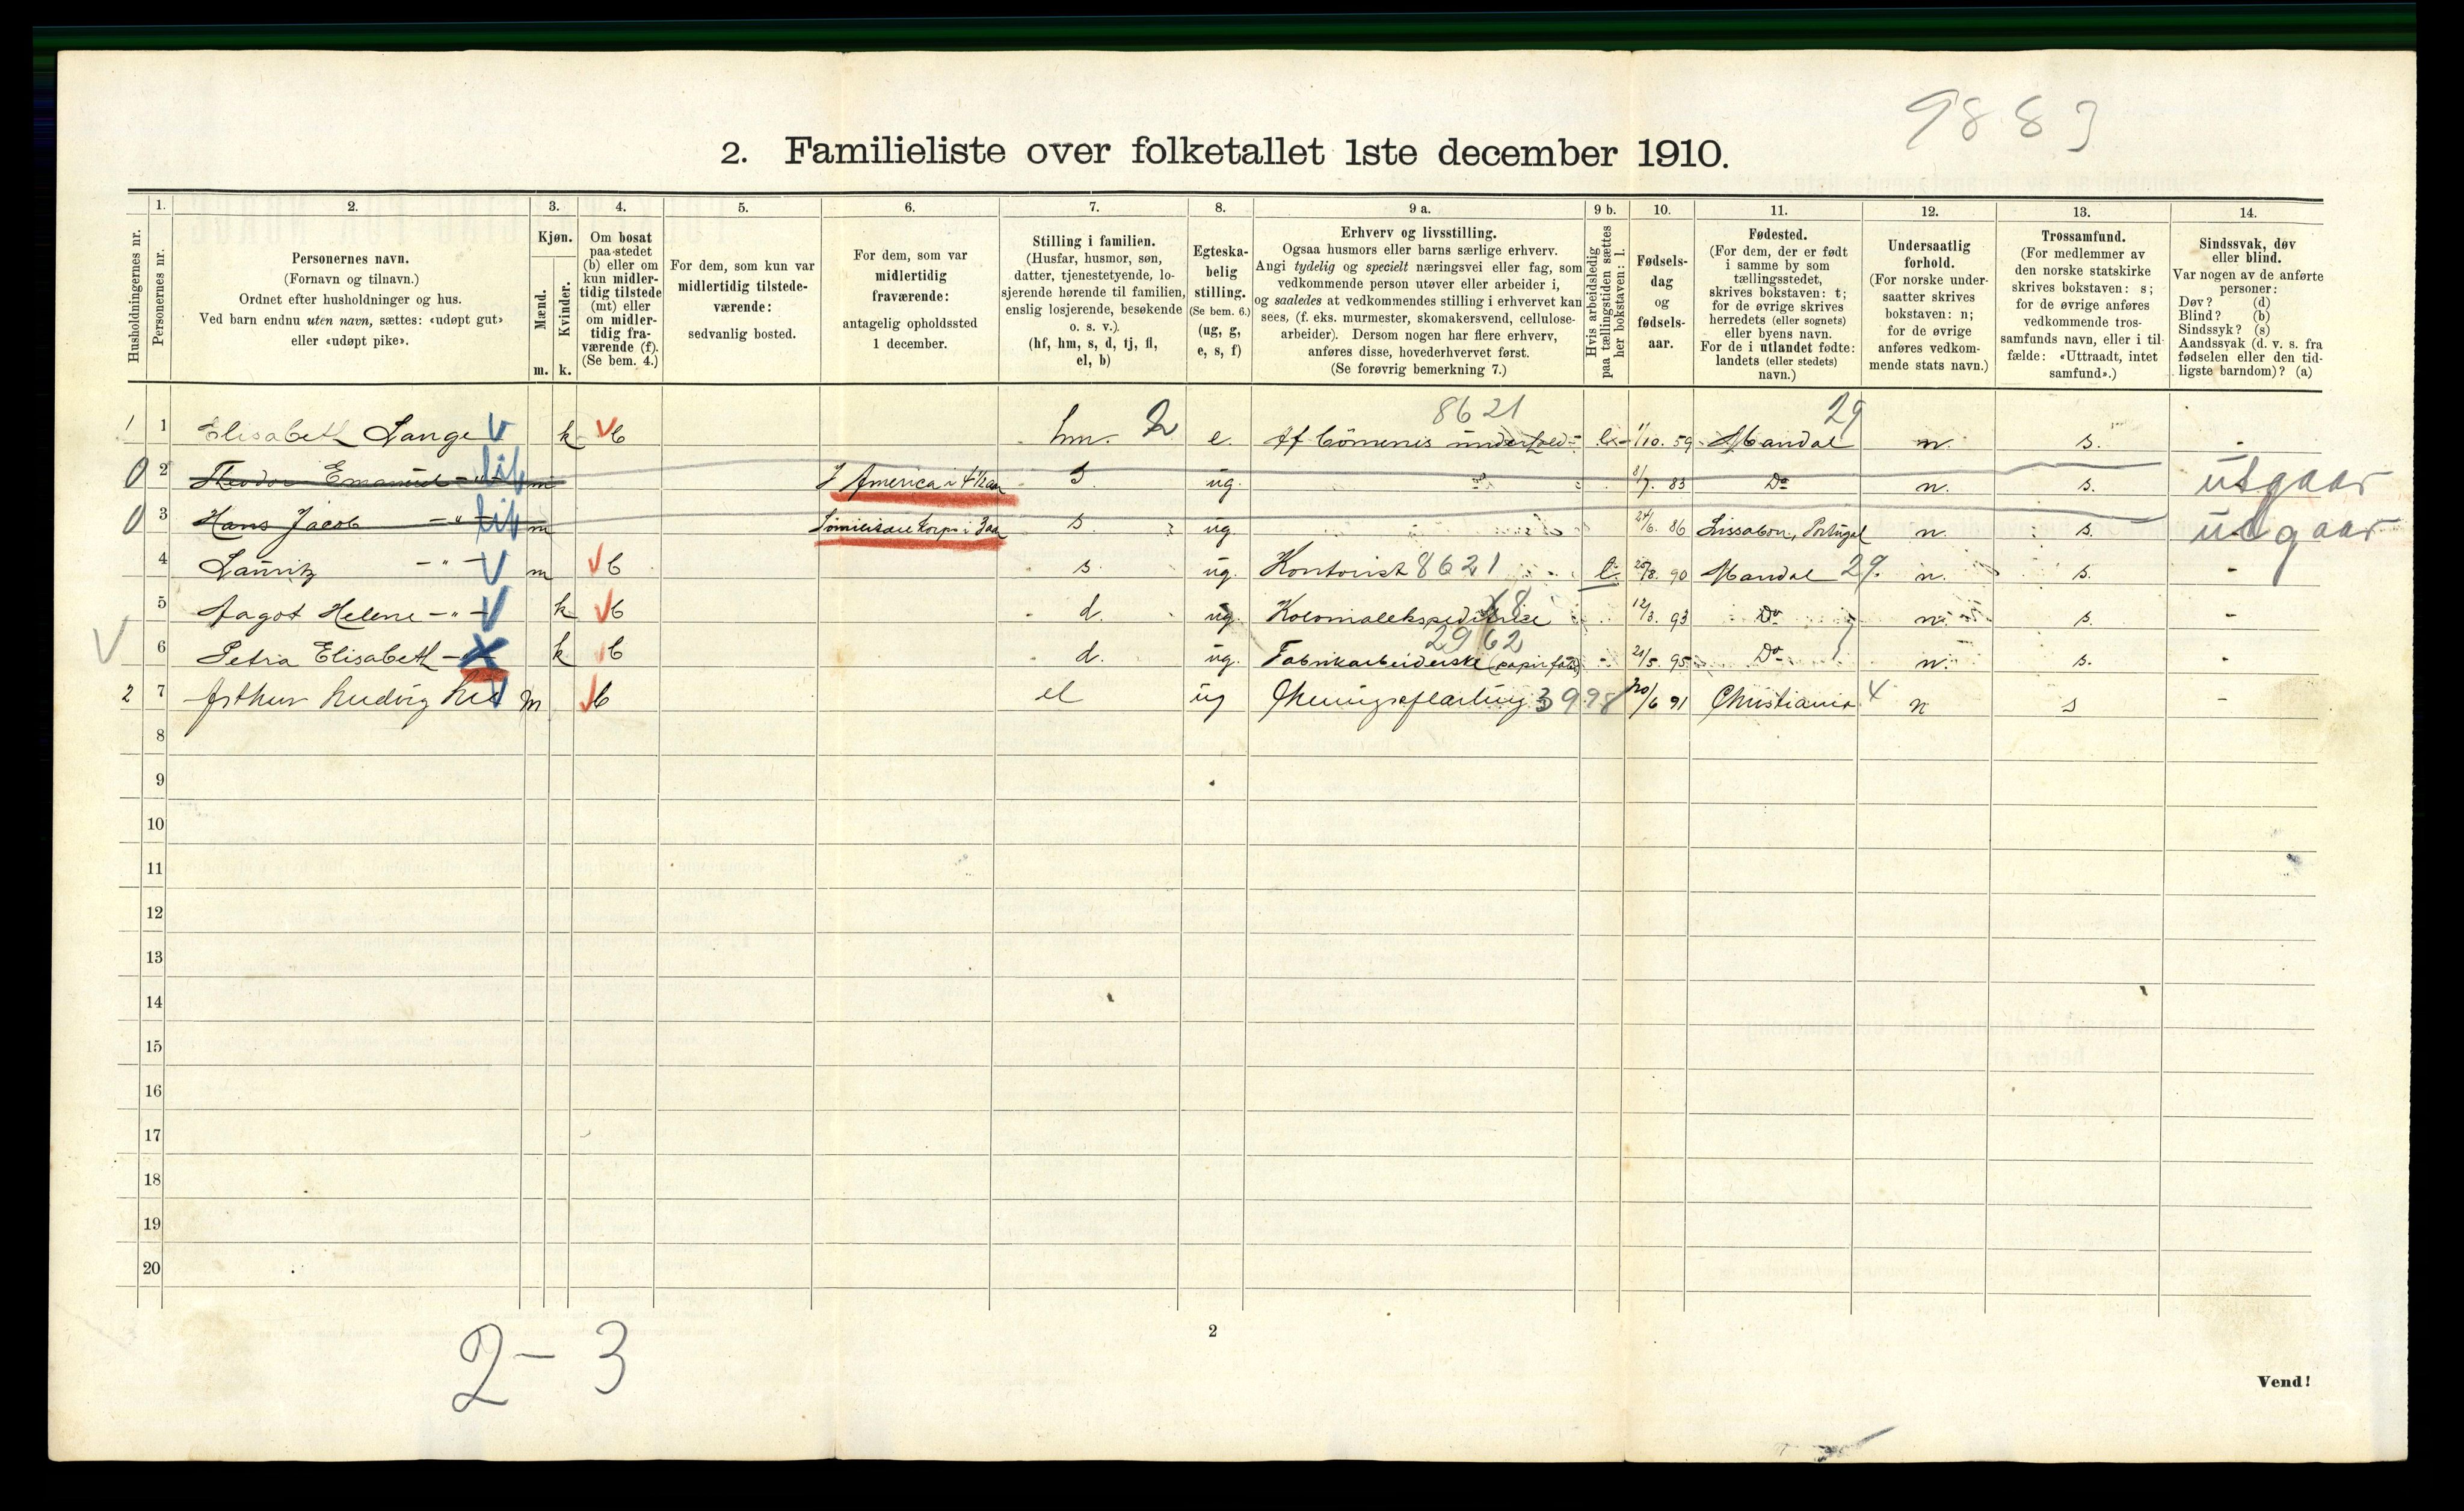 9883
2. Familieliste over folketallet 1ste december 1910.
Husholdningernes nr.
1.
Personernes nr.
2.
Personernes navn.
(Fornavn og tilnavn.)
Ordnet efter husholdninger og hus.
Ved barn endnu uten navn, sættes: «udøpt gut»
eller «udøpt pike».
3.
Kjøn.
Mænd.
Kvinder.
m. k.
4.
Om bosat
paa stedet
(b) eller om
kun midler-
tidig tilstede
(mt) eller
om midler-
tidig fra-
værende (f).
(Se bem. 4.)
5.
For dem, som kun var
midlertidig tilstede-
værende:
sedvanlig bosted.
6.
For dem, som var
midlertidig
fraværende:
antagelig opholdssted
1 december.
7.
Stilling i familien.
(Husfar, husmor, søn,
datter, tjenestetyende, lo-
sjerende hørende til familien,
enslig losjerende, besøkende
o. s. v.).
(hf, hm, s, d, tj, fl,
el, b)
8.
Egteska-
belig
stilling.
(Se bem. 6.)
(ug, g,
e, s, f)
9 a.
Erhverv og livsstilling.
Ogsaa husmors eller barns særlige erhverv.
Angi tydelig og specielt næringsvei eller fag, som
vedkommende person utøver eller arbeider i,
og saaledes at vedkommendes stilling i erhvervet kan
sees, (f. eks. murmester, skomakersvend, cellulose-
arbeider). Dersom nogen har flere erhverv,
anføres disse, hovederhvervet først.
(Se forøvrig bemerkning 7.)
9 b.
Hvis arbeidsledig
paa tællingstiden sættes
her bokstaven: l.
10.
Fødsels-
dag
og
fødsels-
aar.
11.
Fødested.
(For dem, der er født
i samme by som
tællingsstedet,
skrives bokstaven: t;
for de øvrige skrives
herredets (eller sognets)
eller byens navn.
For de i utlandet fødte:
landets (eller stedets)
navn.)
12.
Undersaatlig
forhold.
(For norske under-
saatter skrives
bokstaven: n;
for de øvrige
anføres vedkom-
mende stats navn.)
13.
Trossamfund.
(For medlemmer av
den norske statskirke
skrives bokstaven: s;
for de øvrige anføres
vedkommende tros-
samfunds navn, eller i til-
fælde: «Uttraadt, intet
samfund».)
14.
Sindssvak, døv
eller blind.
Var nogen av de anførte
personer:
Døv? (d)
Blind? (b)
Sindssyk? (s)
Aandssvak (d. v. s. fra
fødselen eller den tid-
ligste barndom)? (a)
8621 29
1 1 Elisabeth Lange k b hm. 2 e. Af Sönnens underhold 1/10. 59 Mandal n. s. -
0 2 Theodor Emanuel -"- m I America i 4½ aar s. ug. 8/7. 83 Do n. s. utgaar
0 3 Hans Jacob -"- m i 3 aar s. ug. 24/6 86 Lissabon, Portugal n. s. utgaar
4 Lauritz -"- m b s. ug. Kontorist 8621 l. 25/8. 90 Mandal 29. n. s. -
5 Aagot Helene -"- k b d. ug. Kolonialekspeditrise 12/3. 93 Do n. s. -
2962
6 Petra Elisabeth -"- k b d. ug. Fabrikarbeiderske (papirfab.) 21/5. 95 Do n. s. -
2 7 Arthur Ludvig m b el ug 3998 20/6 91 Christiania 4 n s -
8
9
10
11
12
13
14
15
16
17
18
19
20
2-3
2
Vend!